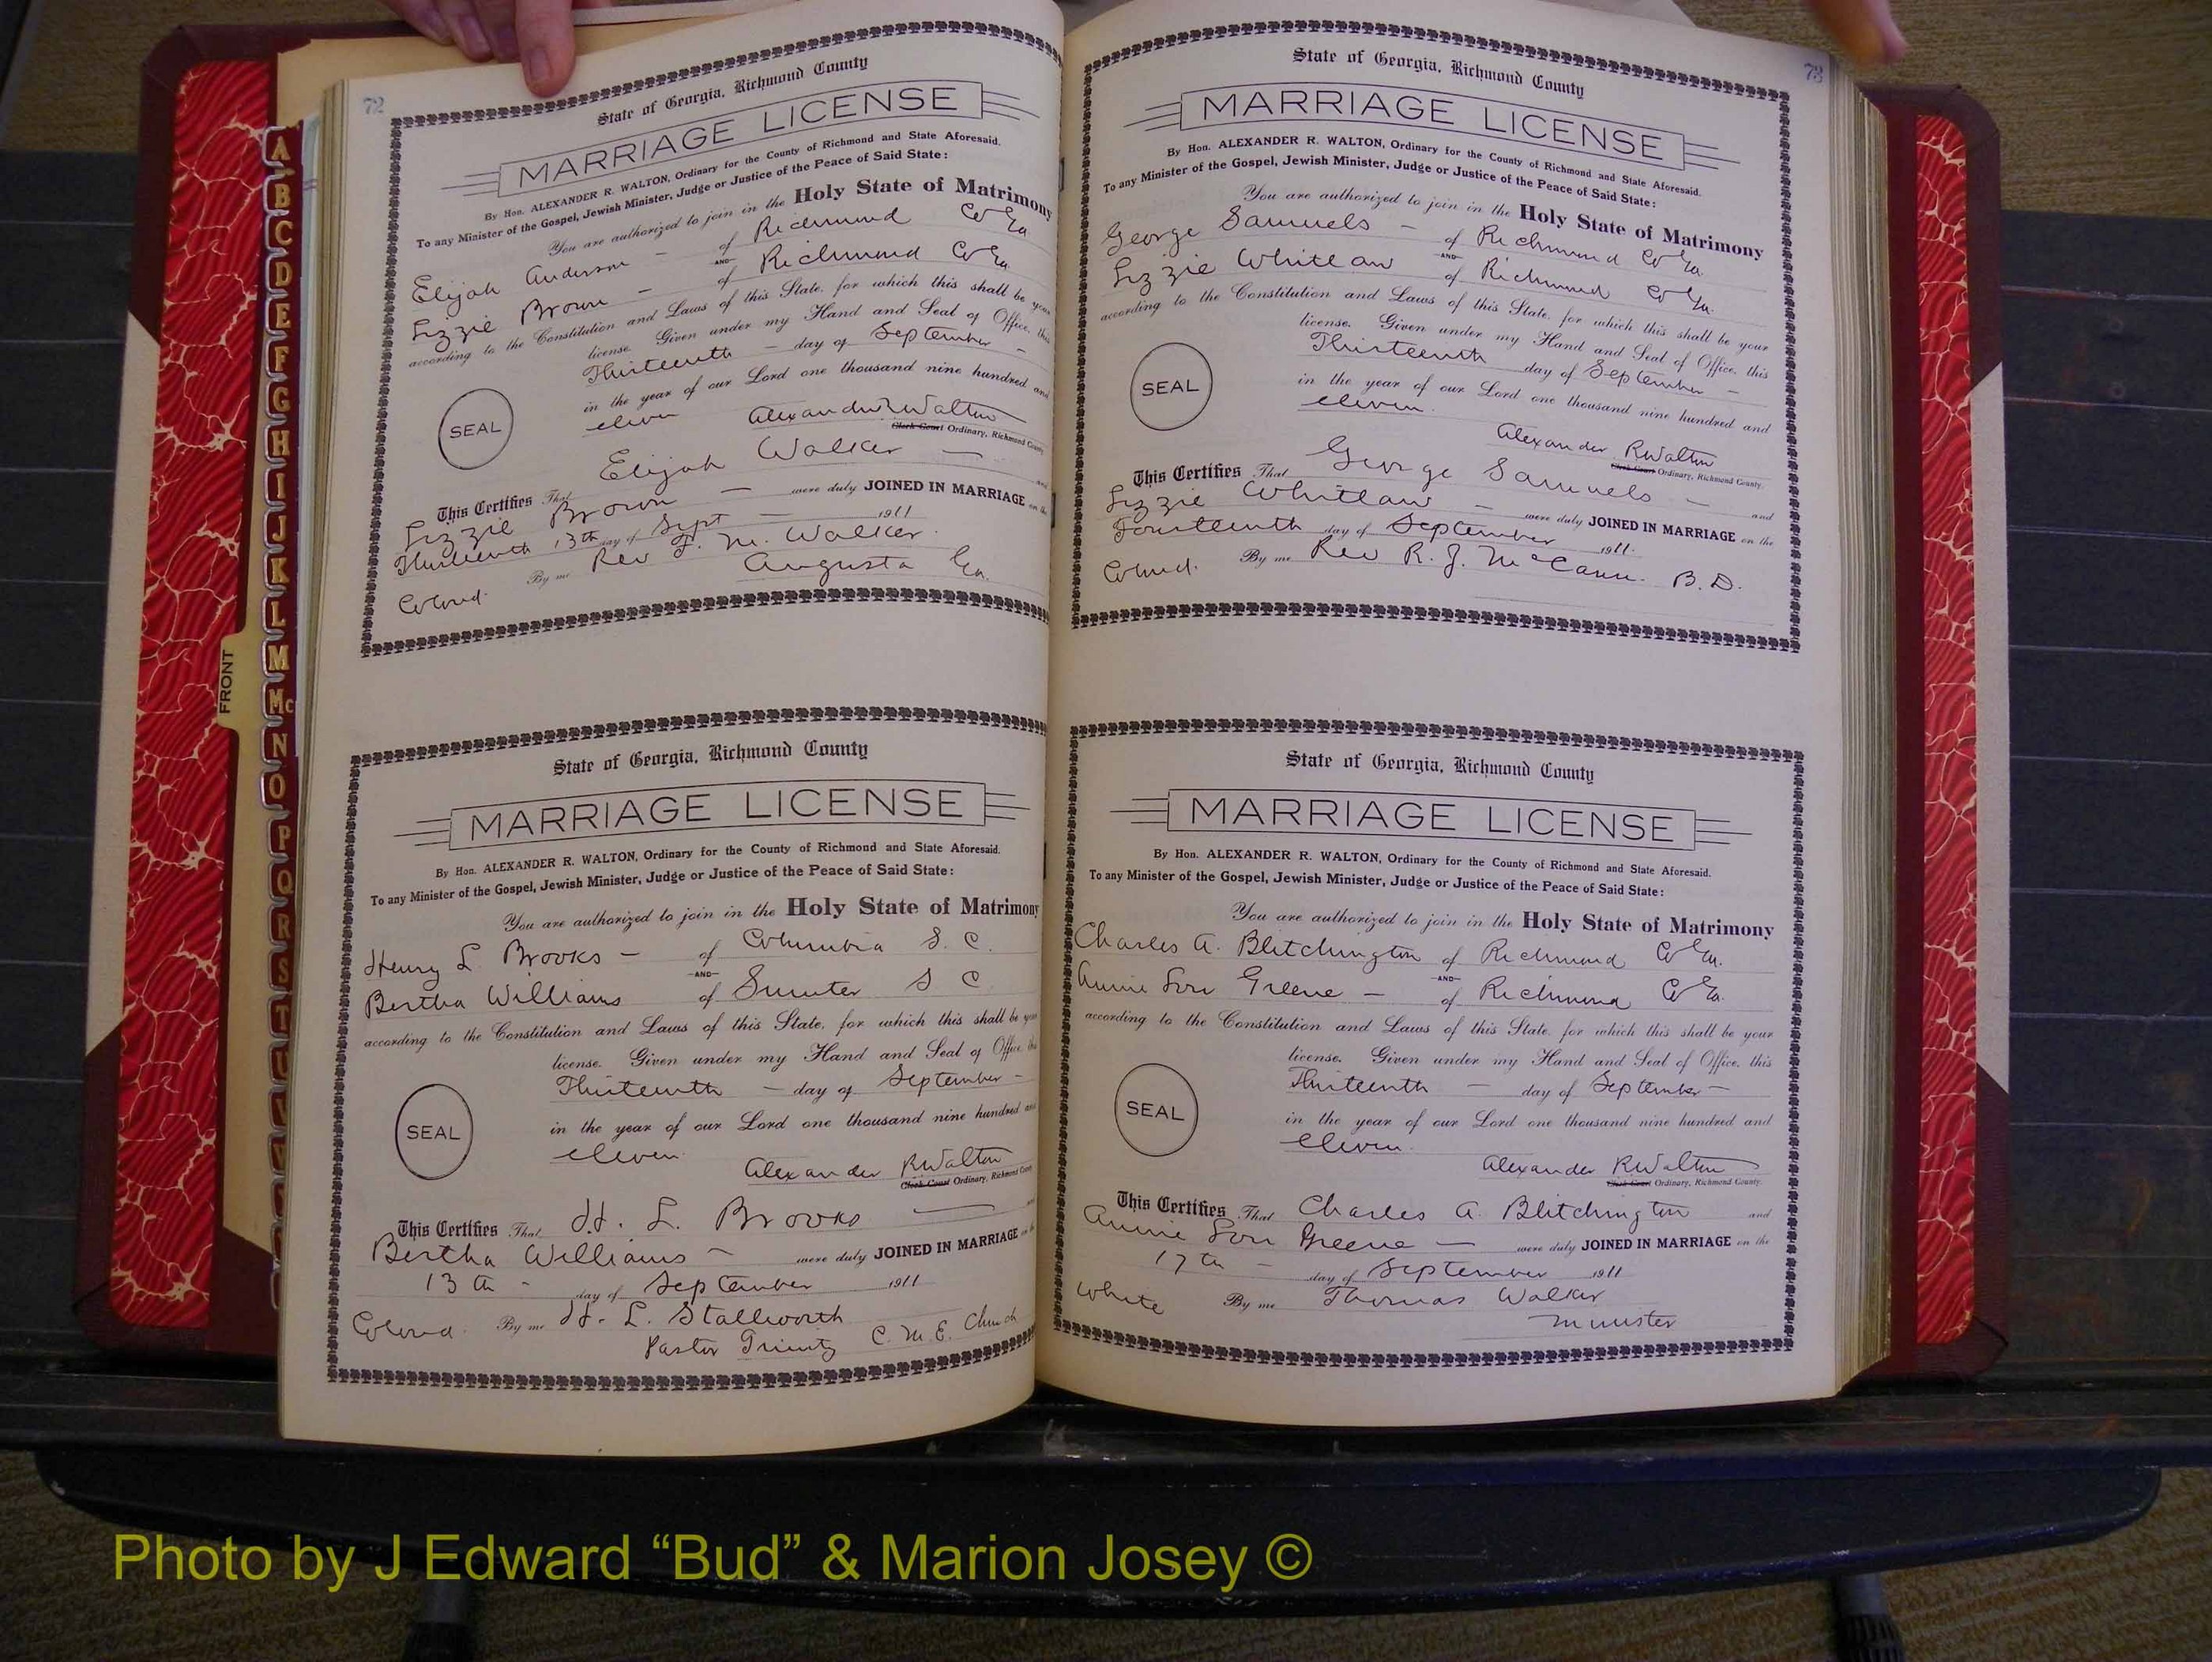 72
State of Georgia, Richmond County
MARRIAGE LICENSE
By Hon. ALEXANDER R. WALTON, Ordinary for the County of Richmond and State Aforesaid.
To any Minister of the Gospel, Jewish Minister, Judge or Justice of the Peace of Said State:
You are authorized to join in the Holy State of Matrimony
Elijah Anderson - of Richmond Co Ga
AND
Lizzie Brown - of Richmond Co Ga.
according to the Constitution and Laws of this State, for which this shall be your
license. Given under my Hand and Seal of Office, this
Thirteenth - day of September -
in the year of our Lord one thousand nine hundred and
eleven
SEAL
Alexander R Walton
Clerk Court Ordinary, Richmond County
This Certifies That Elijah Walker - and
Lizzie Brown - were duly JOINED IN MARRIAGE on the
Thirteenth 13th day of Sept - 1911
By me Rev F. M. Walker.
Colored. Augusta Ga.
State of Georgia, Richmond County
MARRIAGE LICENSE
By Hon. ALEXANDER R. WALTON, Ordinary for the County of Richmond and State Aforesaid.
To any Minister of the Gospel, Jewish Minister, Judge or Justice of the Peace of Said State:
You are authorized to join in the Holy State of Matrimony
Henry L. Brooks - of Columbia S. C.
AND
Bertha Williams of Sumter S C
according to the Constitution and Laws of this State, for which this shall be your
license. Given under my Hand and Seal of Office, this
Thirteenth - day of September -
in the year of our Lord one thousand nine hundred and
eleven.
SEAL
Alexander R Walton
Clerk Court Ordinary, Richmond County
This Certifies That H. L. Brooks - and
Bertha Williams - were duly JOINED IN MARRIAGE on the
13th - day of September 1911
Colored. By me H. L. Stallworth
Pastor Trinity C. M. E. Church
73
State of Georgia, Richmond County
MARRIAGE LICENSE
By Hon. ALEXANDER R. WALTON, Ordinary for the County of Richmond and State Aforesaid.
To any Minister of the Gospel, Jewish Minister, Judge or Justice of the Peace of Said State:
You are authorized to join in the Holy State of Matrimony
George Samuels - of Richmond Co Ga.
AND
Lizzie Whitlaw of Richmond Co Ga.
according to the Constitution and Laws of this State, for which this shall be your
license. Given under my Hand and Seal of Office, this
Thirteenth day of September -
in the year of our Lord one thousand nine hundred and
eleven.
SEAL
Alexander R Walton
Clerk Court Ordinary, Richmond County.
This Certifies That George Samuels - and
Lizzie Whitlaw - were duly JOINED IN MARRIAGE on the
Fourteenth day of September 1911.
Colored. By me Rev R. J. McCann. B. D.
State of Georgia, Richmond County
MARRIAGE LICENSE
By Hon. ALEXANDER R. WALTON, Ordinary for the County of Richmond and State Aforesaid.
To any Minister of the Gospel, Jewish Minister, Judge or Justice of the Peace of Said State:
You are authorized to join in the Holy State of Matrimony
Charles A. Blitchington of Richmond Co Ga.
AND
Annie Lou Greene - of Richmond Co Ga.
according to the Constitution and Laws of this State, for which this shall be your
license. Given under my Hand and Seal of Office, this
Thirteenth - day of September -
in the year of our Lord one thousand nine hundred and
eleven.
SEAL
Alexander R Walton
Clerk Court Ordinary, Richmond County.
This Certifies That Charles A. Blitchington and
Annie Lou Greene - were duly JOINED IN MARRIAGE on the
17th - day of September 1911
White By me Thomas Walker
Minister
FRONT
A
B
C
D
E
F
G
H
I
J
K
L
M
Mc
N
O
P
Q
R
S
T
U
Photo by J Edward “Bud” & Marion Josey ©